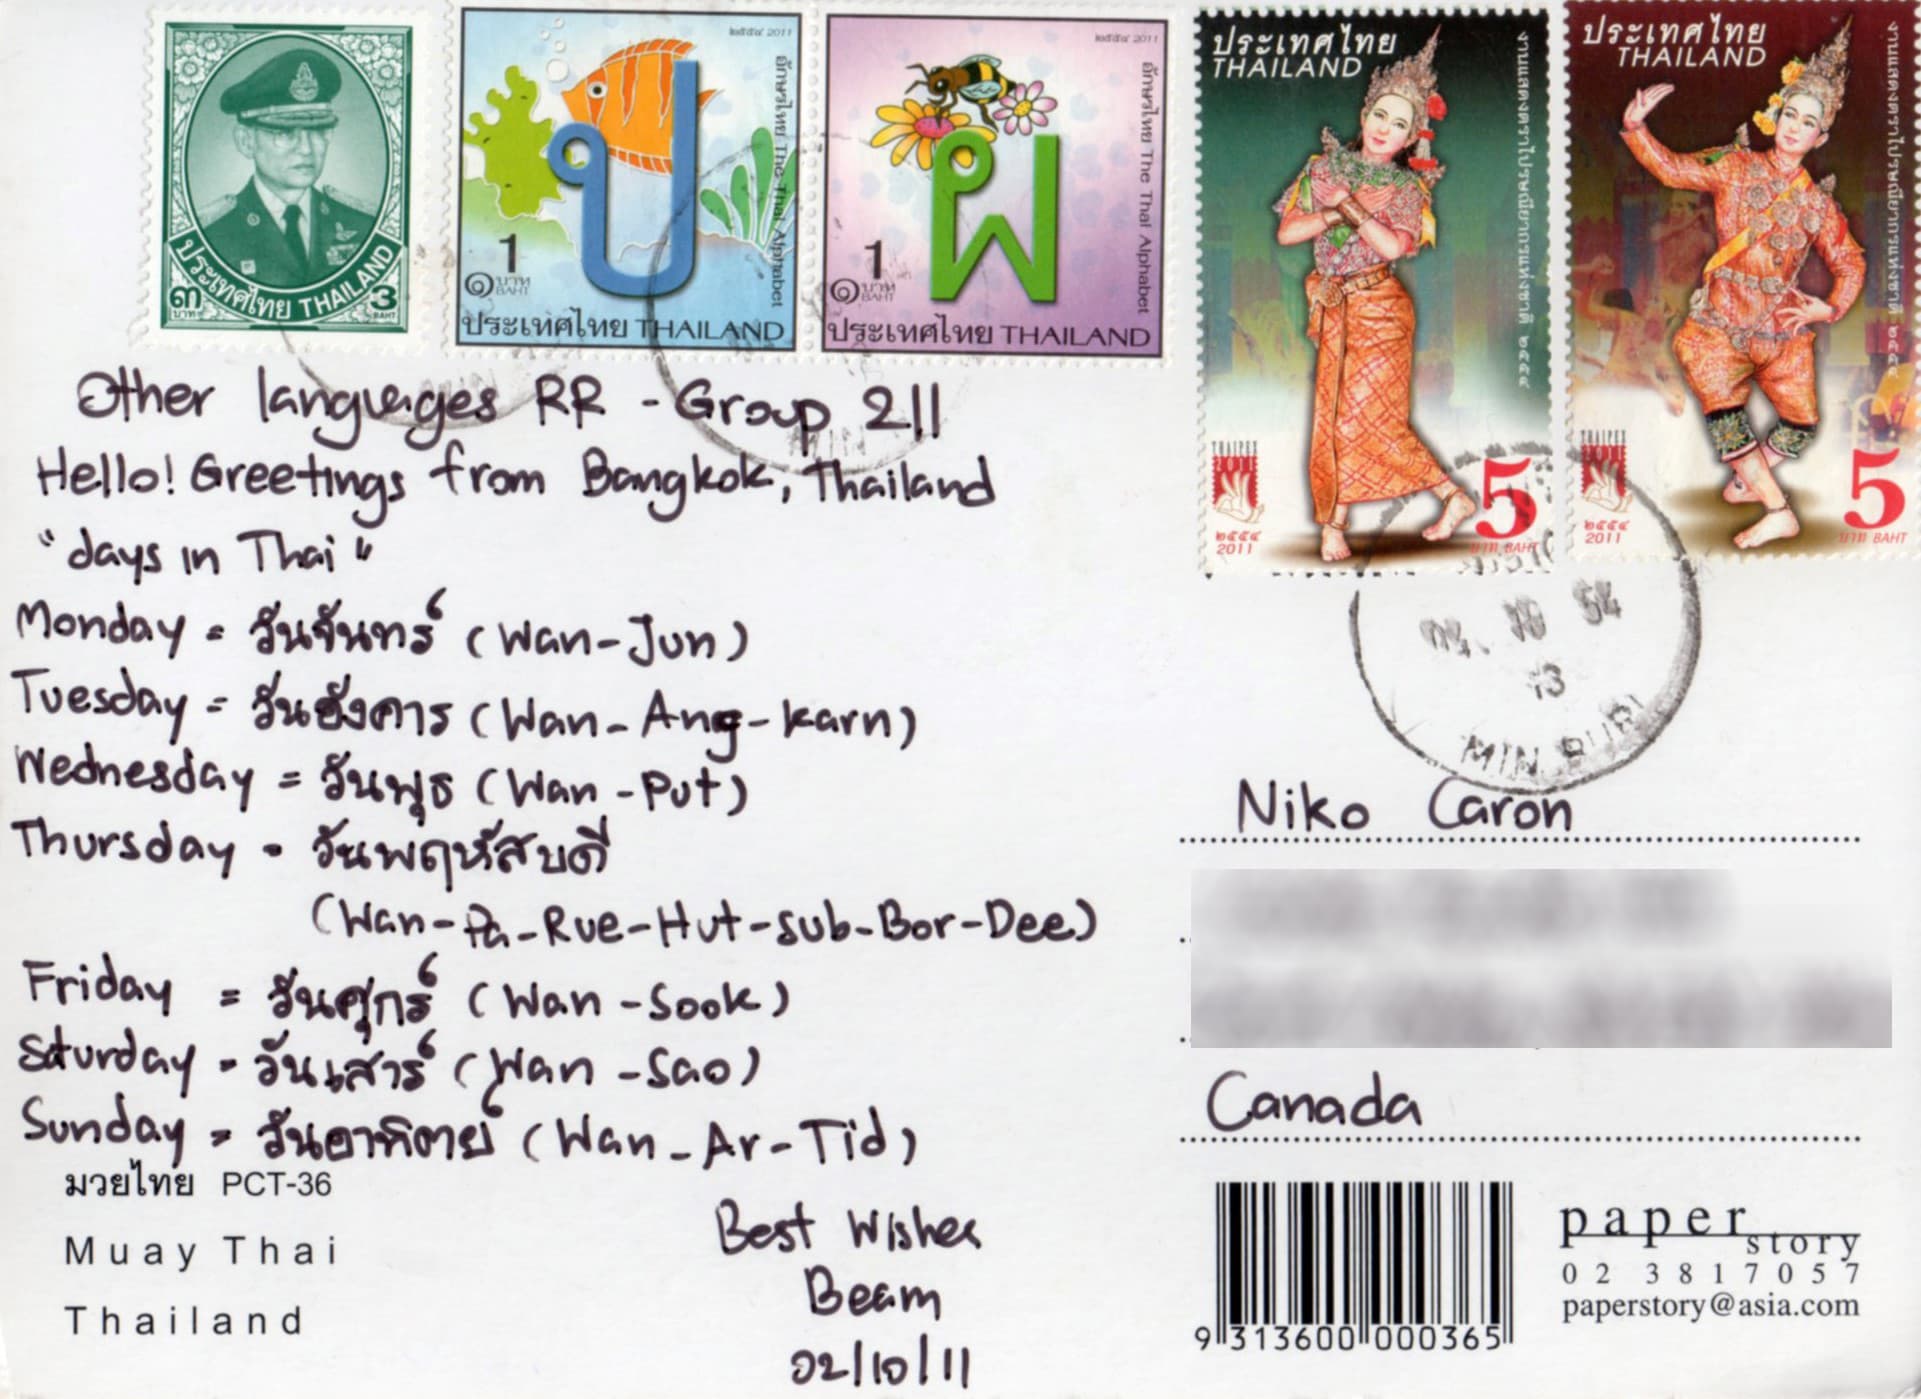 ประเทศไทย THAILAND
๓ 3
บาท BAHT
๒๕๕๔ 2011
อักษรไทย The Thai Alphabet
ป
1
๑ บาท BAHT
ประเทศไทย THAILAND
๒๕๕๔ 2011
อักษรไทย The Thai Alphabet
ผ
1
๑ บาท BAHT
ประเทศไทย THAILAND
ประเทศไทย
THAILAND
งานแสดงตราไปรษณียากรแห่งชาติ ๒๕๕๔
THAIPEX
2011
๒๕๕๔
2011
5
บาท BAHT
ประเทศไทย
THAILAND
งานแสดงตราไปรษณียากรแห่งชาติ ๒๕๕๔
THAIPEX
2011
๒๕๕๔
2011
5
บาท BAHT
Other languages RR - Group 211
Hello! Greetings from Bangkok, Thailand
"days in Thai"
Monday = วันจันทร์ (Wan-Jun)
Tuesday = วันอังคาร (Wan-Ang-Karn)
Wednesday = วันพุธ (Wan-Put)
Thursday = วันพฤหัสบดี
(Wan-Pa-Rue-Hut-Sub-Bor-Dee)
Friday = วันศุกร์ (Wan-Sook)
Saturday = วันเสาร์ (Wan-Sao)
Sunday = วันอาทิตย์ (Wan-Ar-Tid)
Best Wishes
Beam
02/10/11
มวยไทย PCT-36
Muay Thai
Thailand
54
13
MIN BURI
Niko Caron
Canada
9 313600 000365
paper
story
02 3817057
paperstory@asia.com